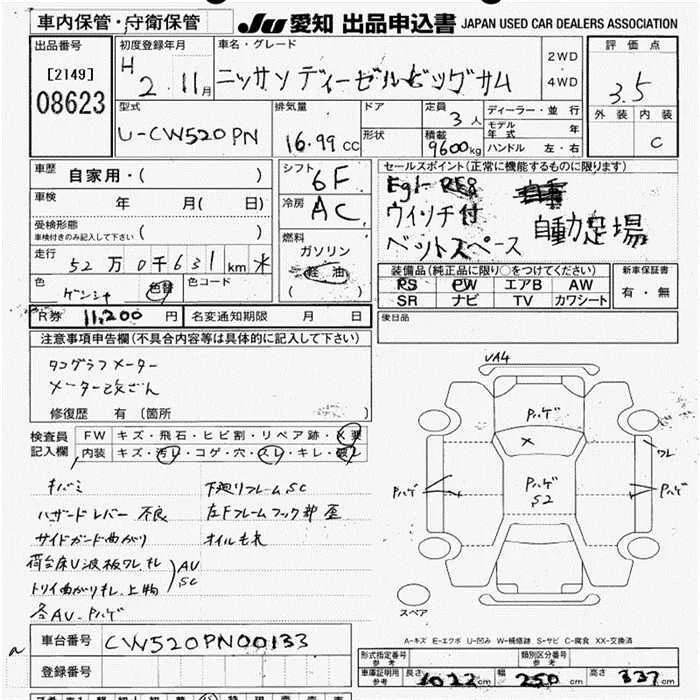 車内保管・守衛保管
JU 愛知 出品申込書 JAPAN USED CAR DEALERS ASSOCIATION
出品番号
[2149]
08623
初度登録年月
H 2.11月
車名・グレード
ニッサンディーゼルビッグサム
2WD
4WD
評価点
3.5
外装 内装
C
型式
U-CW520PN
排気量
16.99cc
ドア
形状
定員
3人
積載
9600kg
ディーラー・並行
モデル年式 年
ハンドル 左・右
車歴
自家用・( )
車検
年 月( 日)
受検形態
車検付きのみ記入して下さい ( )
走行
52万0千631km
色
ゲンシャ
色替
色コード
シフト
6F
冷房
AC
燃料
ガソリン
軽油
( )
セールスポイント(正常に機能するものに限ります)
Egl- RE8
ウィンチ付 自動足場
ベットスペース
装備品(純正品に限り○をつけてください)
PS PW エアB AW
SR ナビ TV カワシート
新車保証書
有・無
R券 11,200円
名変通知期限 月 日
後日品
注意事項申告欄(不具合内容等は具体的に記入して下さい)
タコグラフメーター
メーター改ざん
修復歴 有(箇所 )
検査員記入欄
FW キズ・飛石・ヒビ割・リペア跡・X要
内装 キズ・汚レ・コゲ・穴・スレ・キレ・破レ
キバミ
下廻りフレームSC
ハザードレバー不良
左Fフレームフック部歪
サイドガード曲がり
オイルもれ
荷台床U波板ワレ、キレ
AU
SC
トリイ曲がりキレ、上物
各AU、Pハゲ
UA4
Pハゲ
X
Pハゲ
S2
Pハゲ
Pハゲ
ワレ
スペア
A-キズ E-エクボ U-凹み W-補修跡 S-サビ C-腐食 XX-交換済
車台番号 CW520PN00133
登録番号
形式指定番号 参考
類別区分番号 参考
車庫証明用 参考 長さ 1022cm 幅 250cm 高さ 337cm